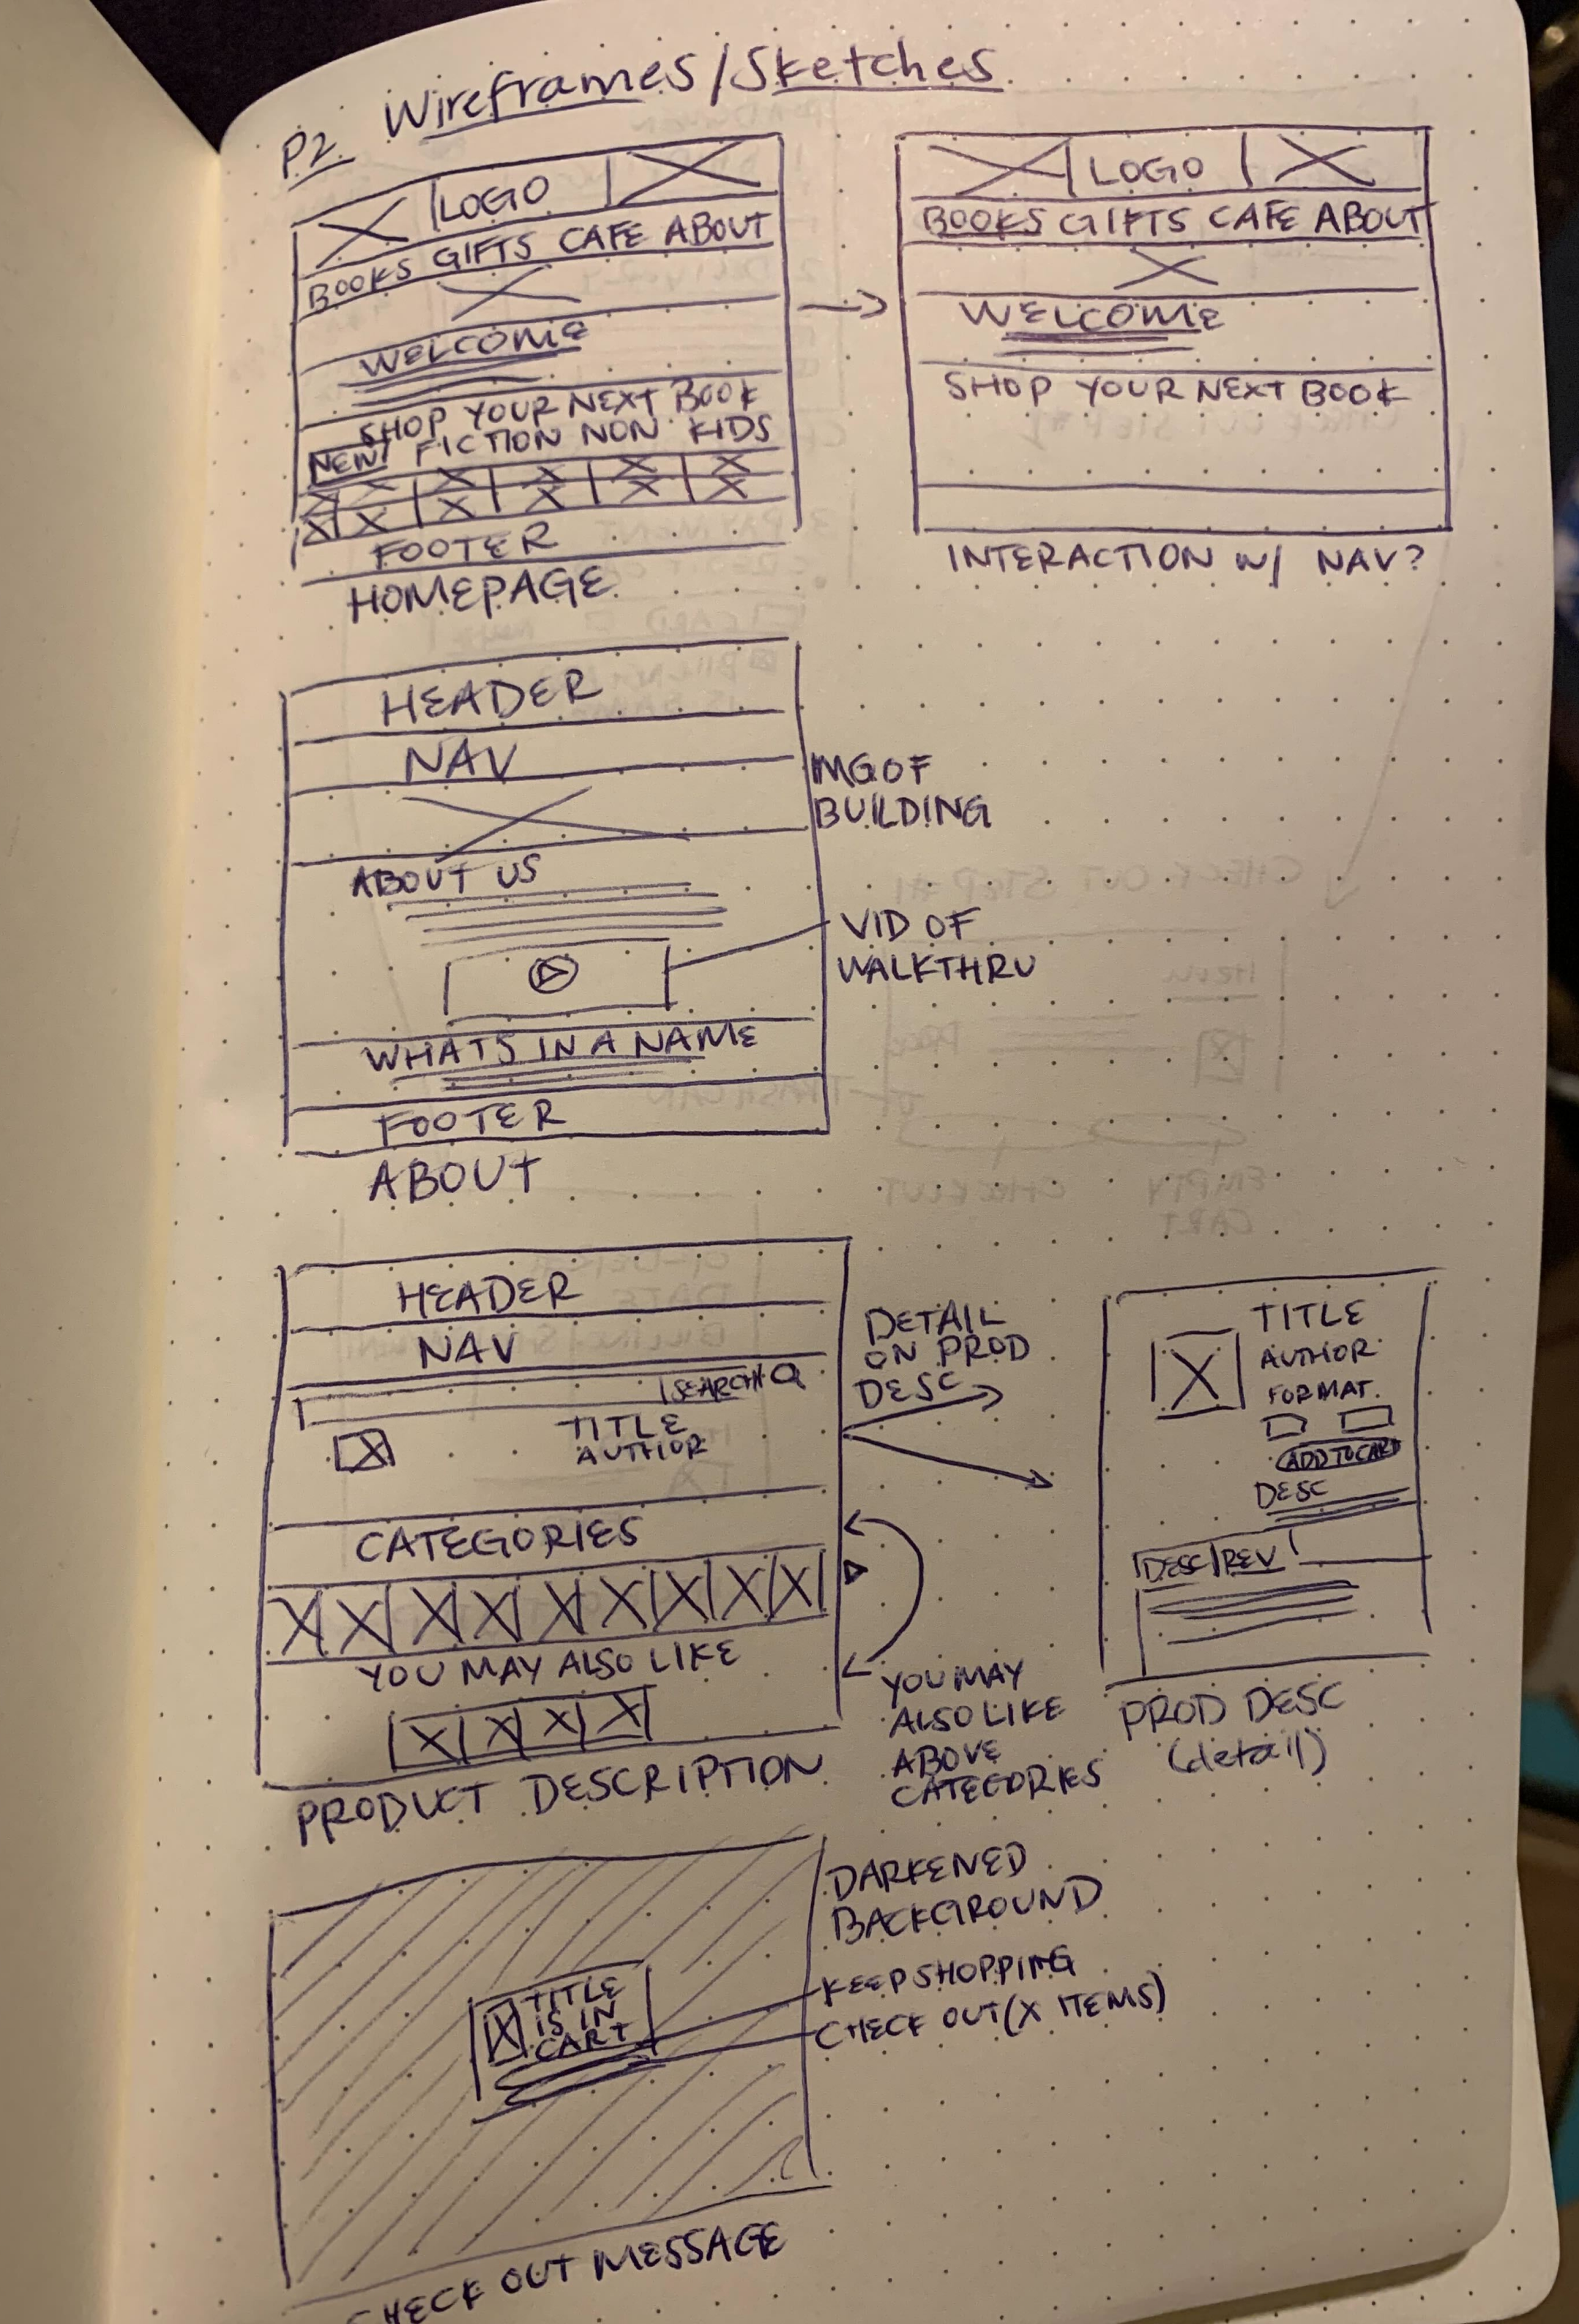 P2 Wireframes/Sketches
LOGO
BOOKS GIFTS CAFE ABOUT
WELCOME
SHOP YOUR NEXT BOOK
NEW! FICTION NON KIDS
FOOTER
HOMEPAGE
LOGO
BOOKS GIFTS CAFE ABOUT
WELCOME
SHOP YOUR NEXT BOOK
INTERACTION W/ NAV?
HEADER
NAV
ABOUT US
WHATS IN A NAME
FOOTER
ABOUT
IMG OF
BUILDING
VID OF
WALKTHRU
HEADER
NAV
SEARCH
TITLE
AUTHOR
CATEGORIES
YOU MAY ALSO LIKE
PRODUCT DESCRIPTION
DETAIL
ON PROD
DESC
YOU MAY
ALSO LIKE
ABOVE
CATEGORIES
TITLE
AUTHOR
FORMAT.
ADD TO CART
DESC
DESC/REV
PROD DESC
(detail)
TITLE
IS IN
CART
DARKENED
BACKGROUND
KEEP SHOPPING
CHECK OUT (X ITEMS)
CHECK OUT MESSAGE